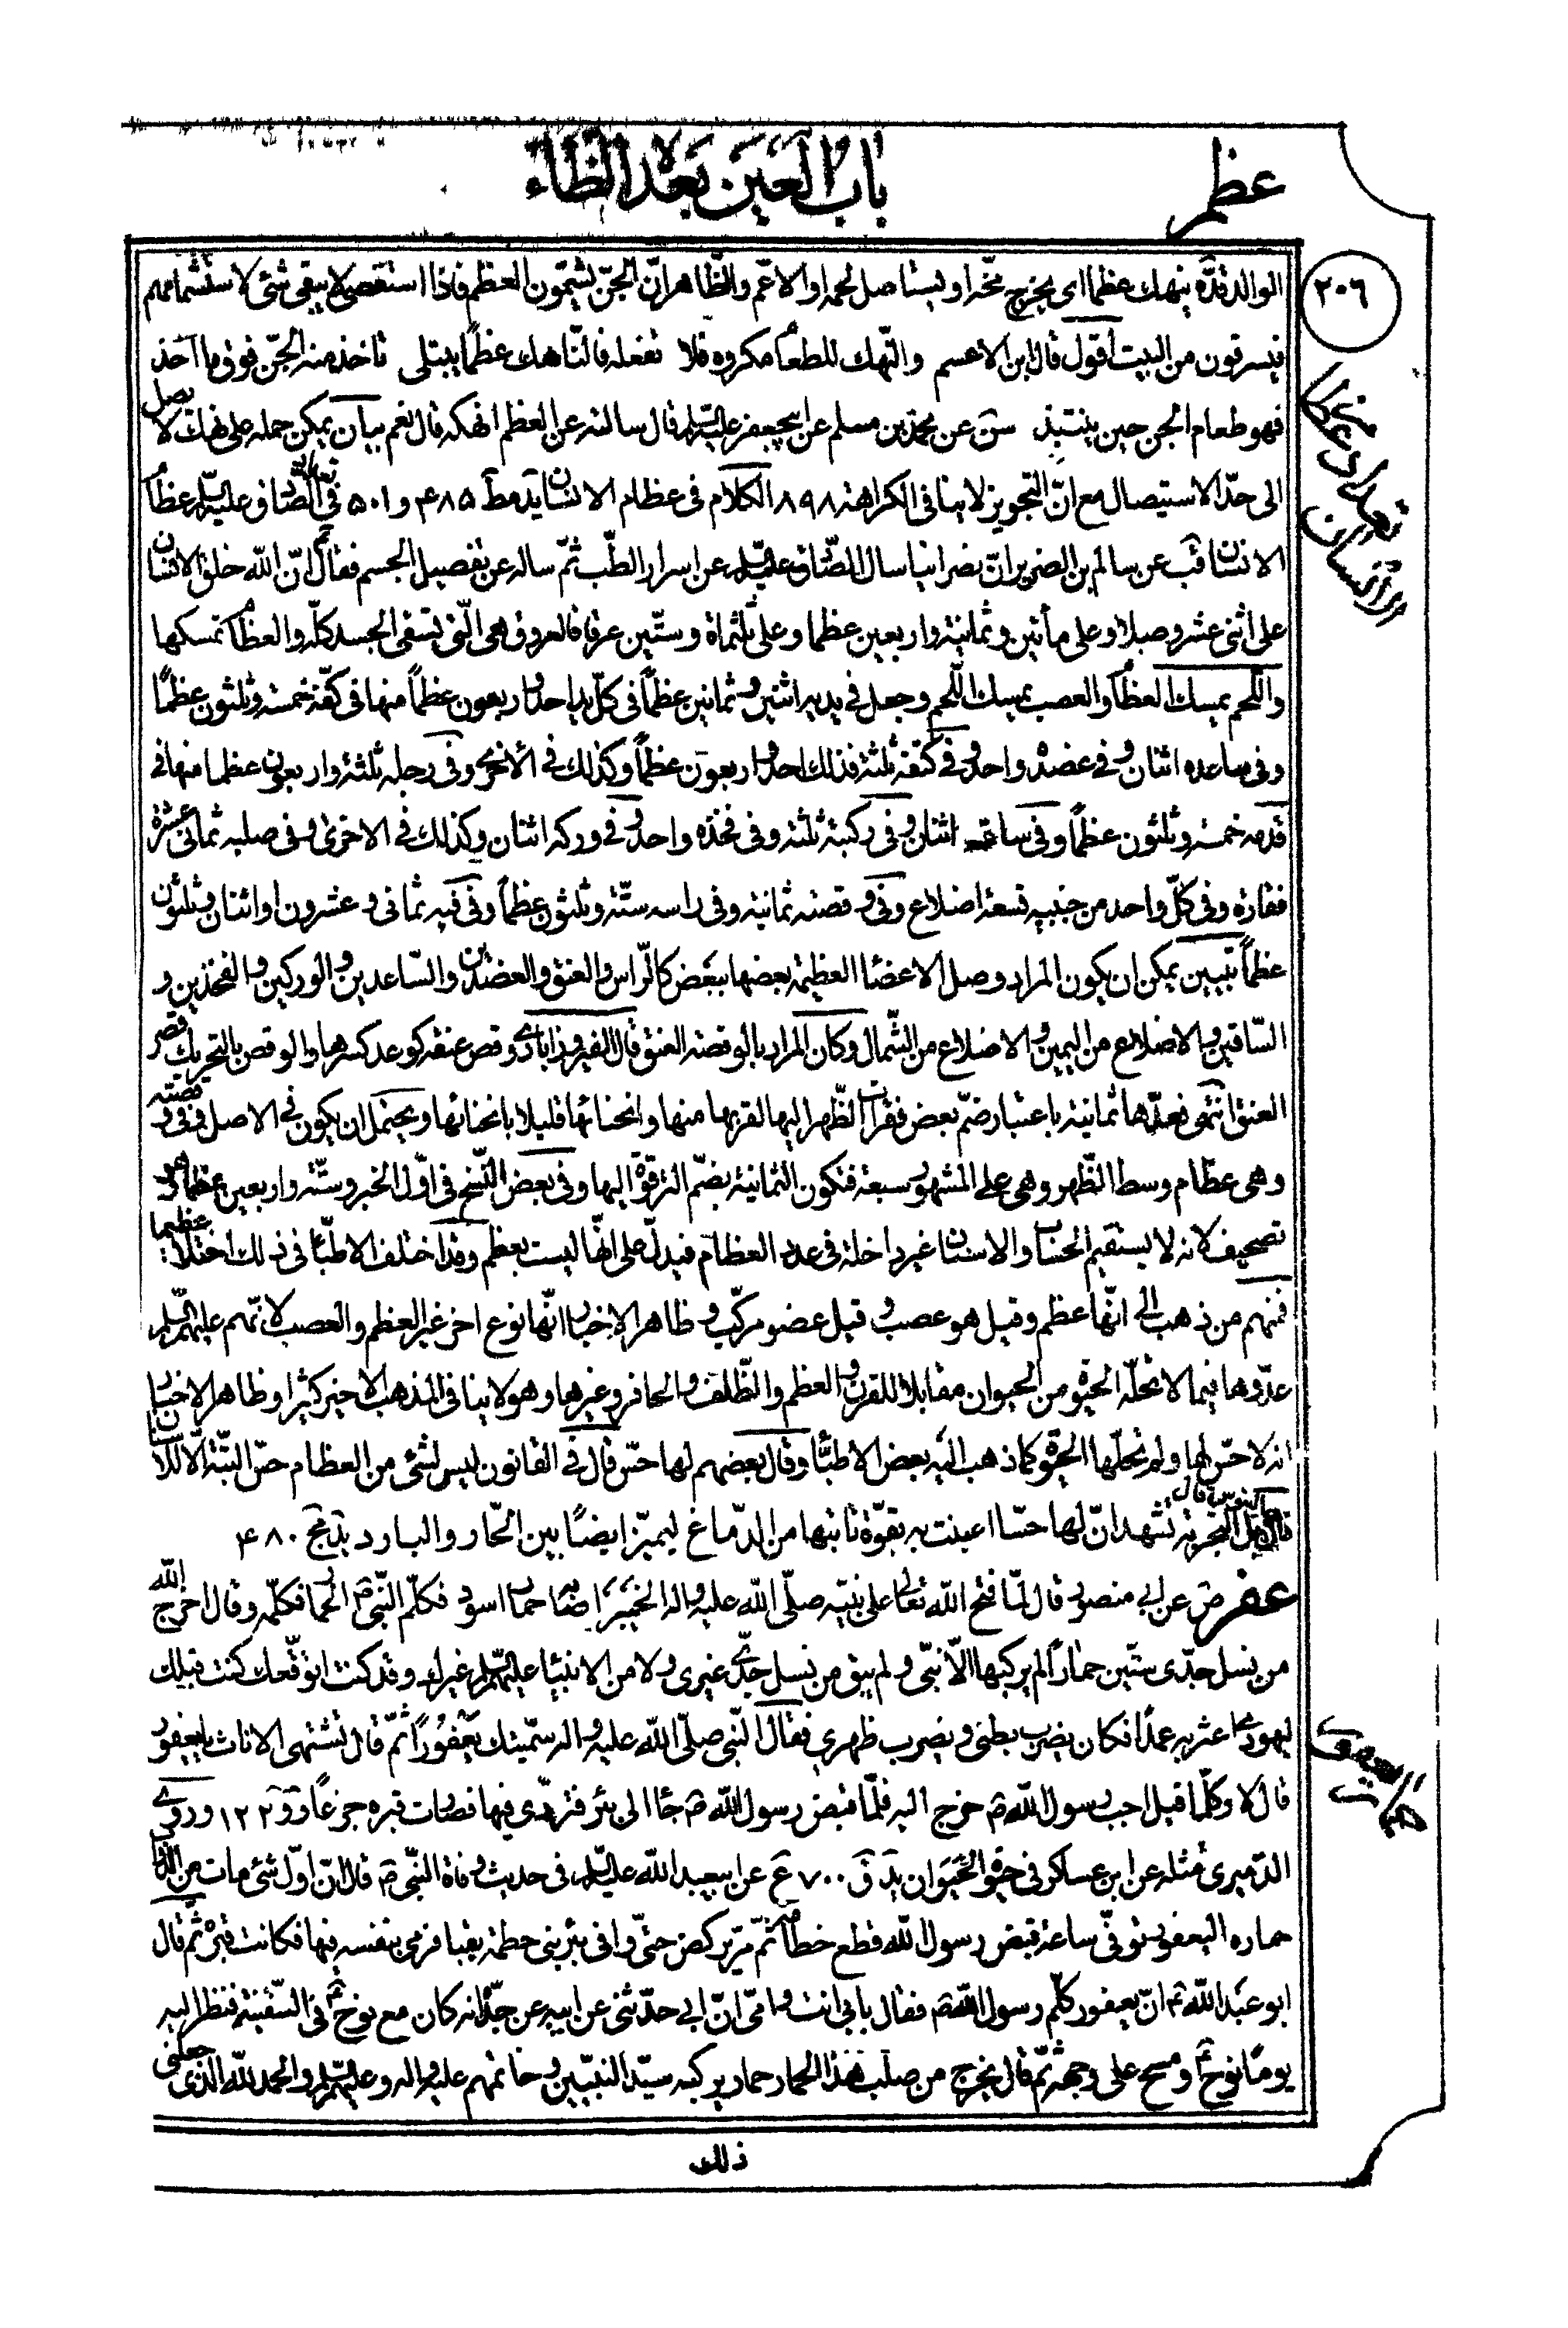 عظم
باب العين بعد الظاء
٢٠٦
الوالد قدّه ينهك عظما اى يخرج مخّه او يستاصل لحمه او الاعمّ والظّاهر انّ الجنّ يشمّون العظم فاذا استقصى لا يبقى شئ لاستشمامهم
فيسرقون من البيت اقول قال ابن الاعسم والنّهك للطعام مكروه فلا تفعله فالنّاهك عظمًا يبتلى تاخذ منه الجنّ فوق ما اخذ
فهو طعام الجن حين ينتبذ سن عن محمّد بن مسلم عن ابيجعفر عليه السّلم قال سالته عن العظم انهكه قال نعم بيان يمكن حمله على نهك لا يصل
الى حدّ الاستيصال مع انّ التجويز لا ينافى الكراهة ٨٩٨ الكلام فى عظام الانسان يد مط ٤٨٥ و ٥٠١ الصّادق عليه السّلم عظام
الانسان قب عن سالم بن الضرير انّ نصرانيا سال الصّادق عليه السّلم عن اسرار الطّب ثمّ ساله عن تفصيل الجسم فقال ع انّ الله خلق الانسان
على اثنى عشر وصلا وعلى مأتين وثمانية واربعين عظما وعلى ثلثماة وستّين عرقا فالعروق هى الّتى تسقى الجسد كلّه والعظام تمسكها
واللّحم يمسك العظام والعصب يمسك اللّحم وجعل فى يديه اثنين وثمانين عظمًا فى كلّ يد احد واربعون عظمًا منها فى كفّه خمسة وثلثون عظمًا
وفى ساعده اثنان وفى عضده واحد وفى كتفه ثلثة فذلك احد واربعون عظمًا وكذلك فى الاخرى وفى رجله ثلثة واربعون عظما منها فى
قدمه خمسة وثلثون عظمًا وفى ساقه اثنان وفى ركبته ثلثة وفى فخذه واحد وفى وركه اثنان وكذلك فى الاخرى وفى صلبه ثمانى عشرة
فقارة وفى كلّ واحد من جنبيه تسعة اضلاع وفى وقصته ثمانية وفى راسه ستّة وثلثون عظمًا وفى فيه ثمانى وعشرون او اثنان وثلثون
عظمًا تبيين يمكن ان يكون المراد وصل الاعضاء العظيمة بعضها ببعض كالرّاس والعنق والعضدين والسّاعدين والوركين والفخذين و
السّاقين والاضلاع من اليمين والاضلاع من الشّمال وكان المراد بالوقصة العنق قال الفيروزابادى وقص عنقه كوعد كسرها والوقص بالتحريك قصر
العنق انتهى فعدّها ثمانية باعتبار ضمّ بعض فقرات الظّهر اليها لقربها منها وانحنائها قليلا بانحنائها ويحتمل ان يكون فى الاصل وفى وقصته
وهى عظام وسط الظّهر وهى على المشهور سبعة فتكون الثمانية بضمّ الترقوة اليها وفى بعض النّسخ فى اوّل الخبر وستّة واربعين عظما وهو
تصحيف لانه لا يستقيم الحساب والاسنان غير داخلة فى عدد العظام فيدلّ على انّها ليست بعظم وقد اختلف الاطبّاء فى ذلك اختلافا عظيما
فمنهم من ذهب الى انّها عظم وقيل هو عصب وقيل عضو مركّب وظاهر الاخبار انّها نوع اخر غير العظم والعصب لانّهم عليهم السّلم
عدّوها فيما لا تحلّه الحيوة من الحيوان مقابلا للقرن والعظم والظّلف والحافر وغيرها وهو لا ينافى المذهب الاخير كثيرا وظاهر الاخبار
انه لا حسّ لها ولم تحلّها الحيوة كما ذهب اليه بعض الاطبّاء وقال بعضهم لها حسّ قال فى القانون ليس لشئ من العظام حسّ البتّة الّا للاسنان
فانّ جالينوس قال بل التجربة تشهد انّ لها حسّا اعينت به بقوّة تاتيها من الدّماغ ليميّز ايضًا بين الحار والبارد يد مج ٤٨٠
عفر ص عن ابى منصور قال لمّا فتح الله تعالى على نبيّه صلّى الله عليه واله الخيبر اصابه حمار اسود فكلّم النّبى ص الحمار فكلّمه وقال اخرج الله
من نسل جدّى ستّين حمارًا لم يركبها الّا نبىّ ولم يبق من نسل جدّى غيرى ولا من الانبياء عليهم السّلم غيرك وقد كنت اتوقّعك كنت قبلك
ليهودى اعثر به عمدًا فكان يضرب بطنى ويضرب ظهرى فقال النّبى صلّى الله عليه واله سمّيتك يعفورًا ثمّ قال تشتهى الاناث يا يعفور
قال لا وكلّما قيل اجب رسول الله ص خرج اليه فلمّا قبض رسول الله ص جاء الى بئر فتردّى فيها فصارت قبره جزعًا وو ١٢٢ وروى
الدّميرى مثله عن ابن عساكر فى حيوة الحيوان يد ق ٧٠٠ ع عن ابيعبد الله عليه السّلم فى حديث وفاة النّبى ص قال انّ اوّل شئ مات من الدّواب
حماره اليعفور توفّى ساعة قبض رسول الله قطع خطامه ثمّ مرّ يركض حتّى وافى بئر بنى حطمة بقبا فرمى بنفسه فيها فكانت قبره ثمّ قال
ابو عبد الله ع انّ يعفور كلّم رسول الله ص فقال بابى انت وامّى انّ ابى حدّثنى عن ابيه عن جدّه انه كان مع نوح ع فى السّفينة فنظر اليه
يومًا نوح ع ومسح على وجهه ثمّ قال يخرج من صلب هذا الحمار حمار يركبه سيّد النبيّين وخاتمهم عليه واله وعليهم السّلم والحمد لله الذى جعلنى
ذلك